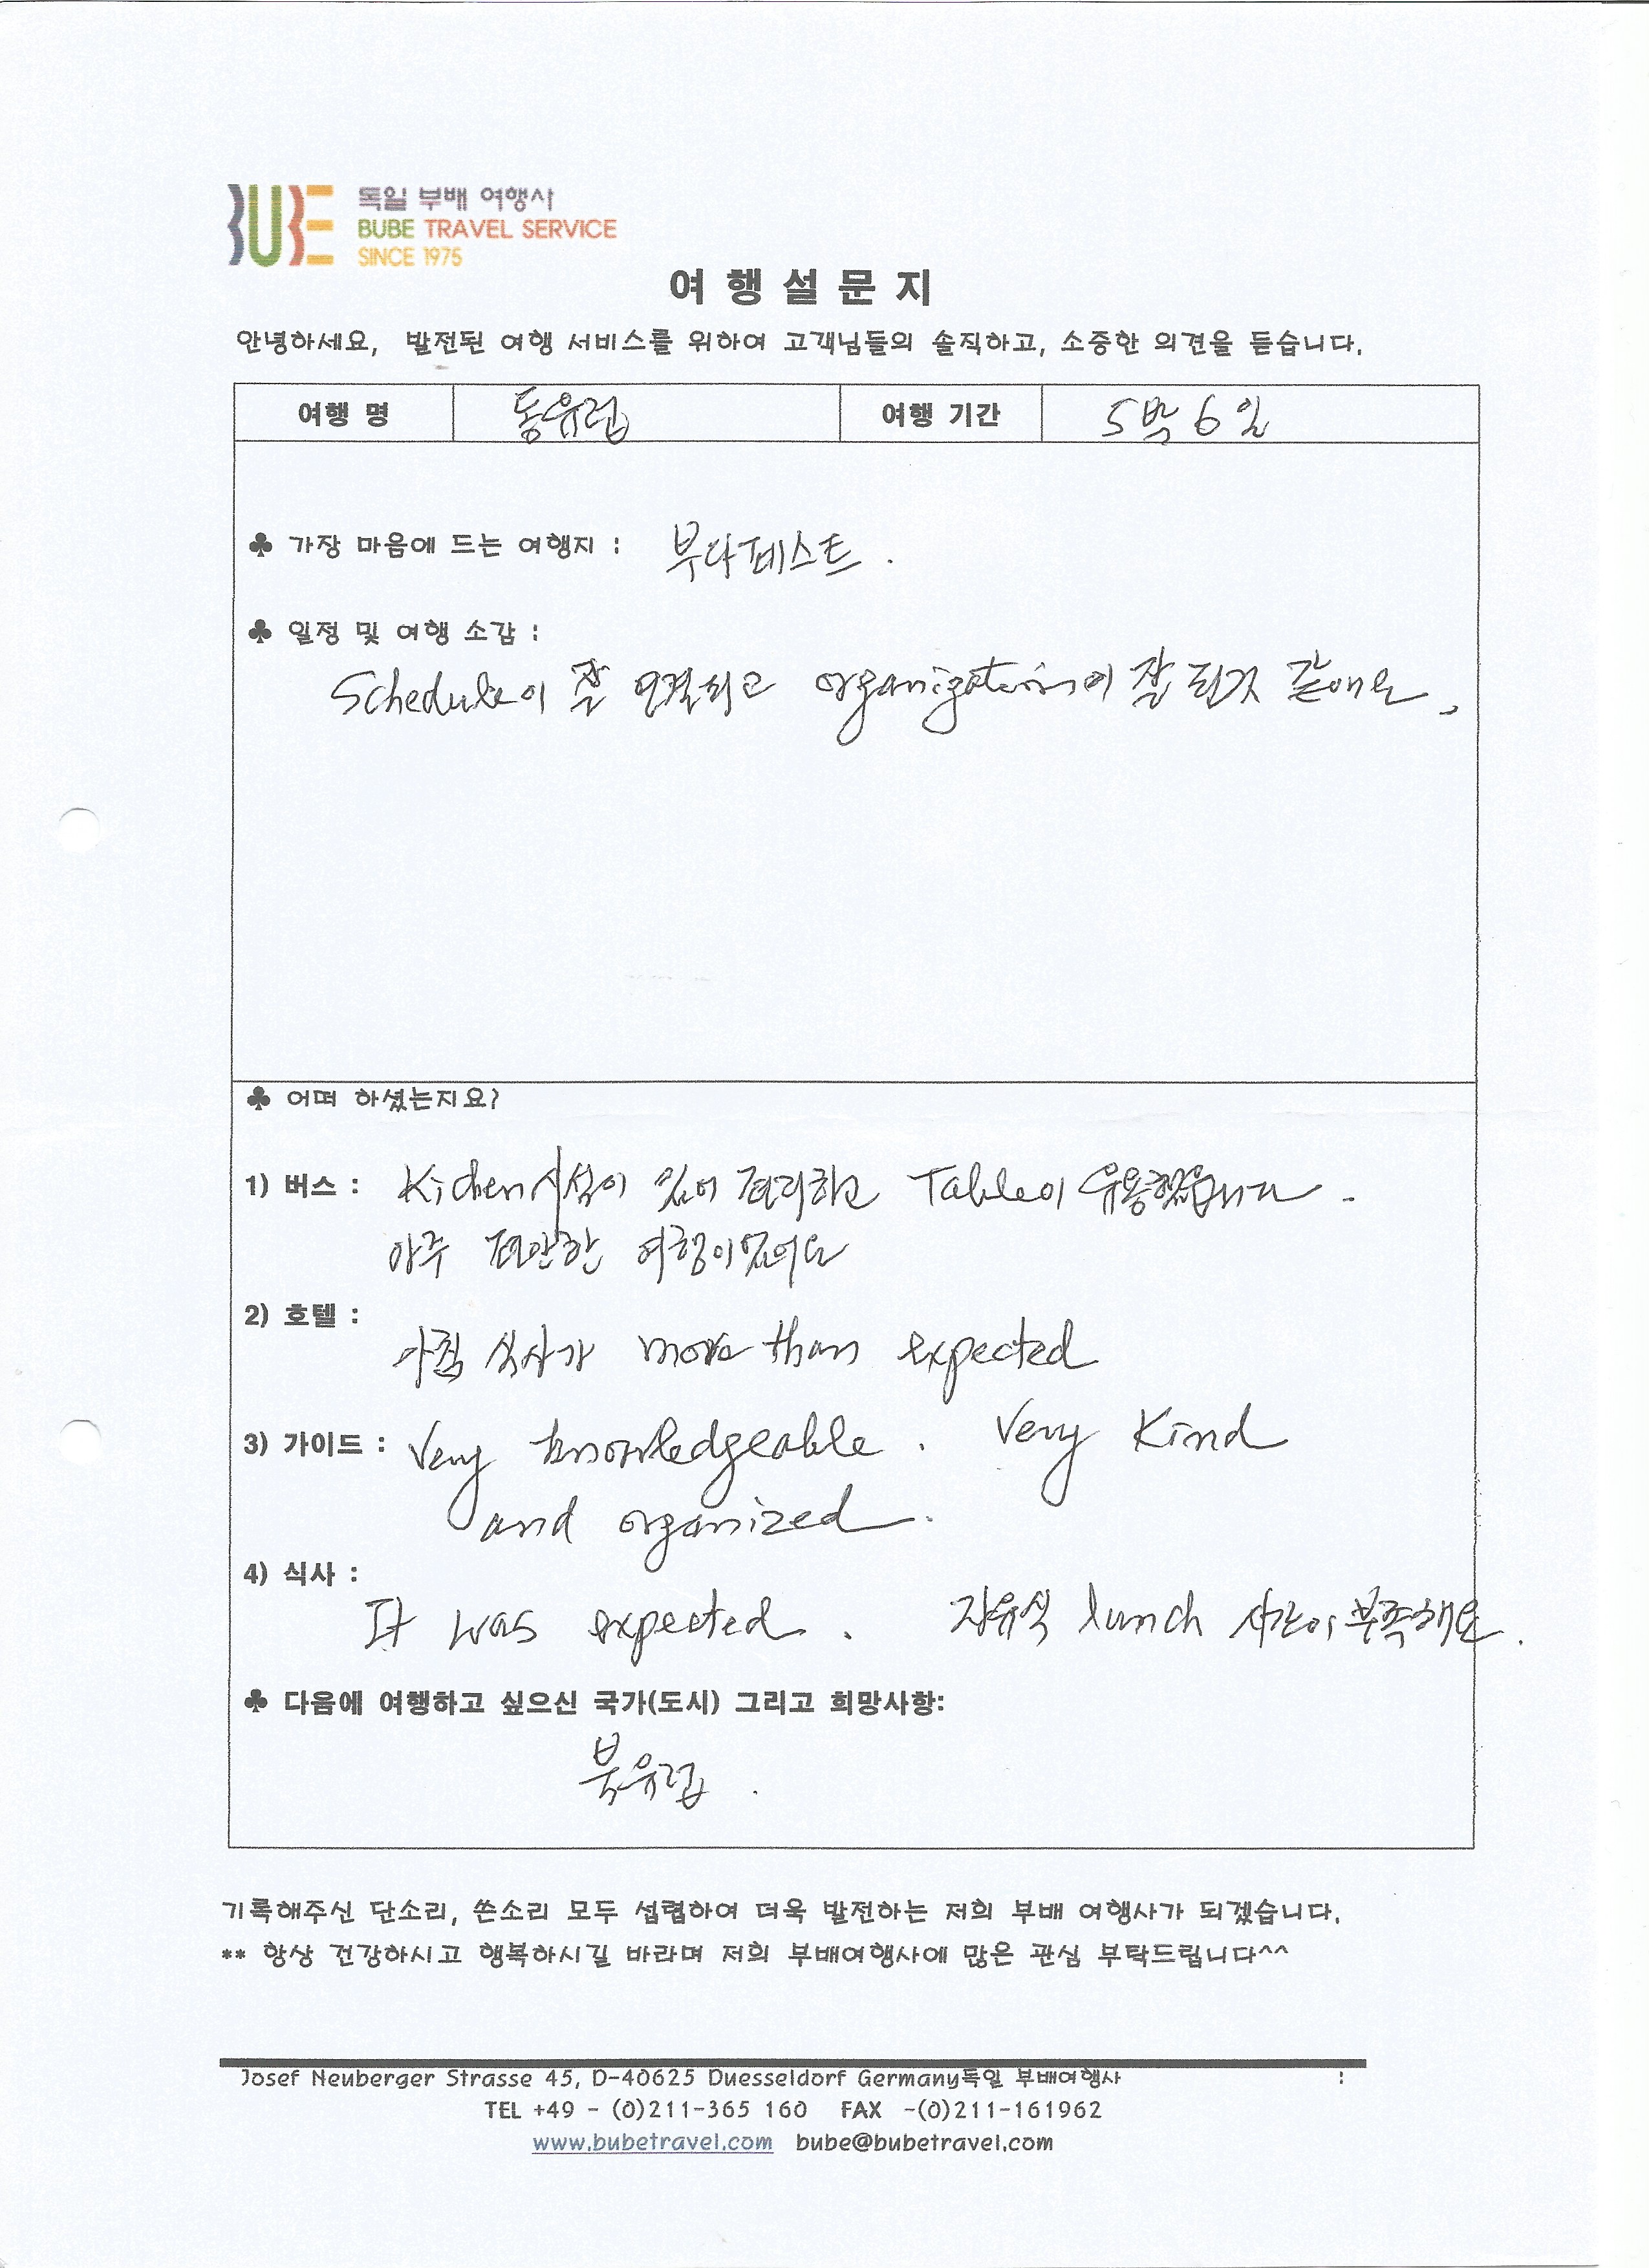 BUBE
독일 부배 여행사
BUBE TRAVEL SERVICE
SINCE 1975
여 행 설 문 지
안녕하세요, 발전된 여행 서비스를 위하여 고객님들의 솔직하고, 소중한 의견을 듣습니다.
여행 명 동유럽 여행 기간 5박 6일
♣ 가장 마음에 드는 여행지 : 부다페스트.
♣ 일정 및 여행 소감 :
Schedule이 잘 연결되고 organization이 잘 된것 같애요.
♣ 어떠 하셨는지요?
1) 버스 : Kichen시설이 있어 편리하고 Table이 유용했습니다.
아주 편안한 여행이었어요
2) 호텔 :
아침 식사가 more than expected
3) 가이드 : Very knowledgeable. Very Kind
and organized.
4) 식사 :
It was expected. 자유식 lunch 시간이 부족해요.
♣ 다음에 여행하고 싶으신 국가(도시) 그리고 희망사항:
북유럽.
기록해주신 단소리, 쓴소리 모두 섭렵하여 더욱 발전하는 저희 부배 여행사가 되겠습니다.
** 항상 건강하시고 행복하시길 바라며 저희 부배여행사에 많은 관심 부탁드립니다^^
Josef Neuberger Strasse 45, D-40625 Duesseldorf Germany독일 부배여행사 :
TEL +49 - (0)211-365 160 FAX -(0)211-161962
www.bubetravel.com bube@bubetravel.com